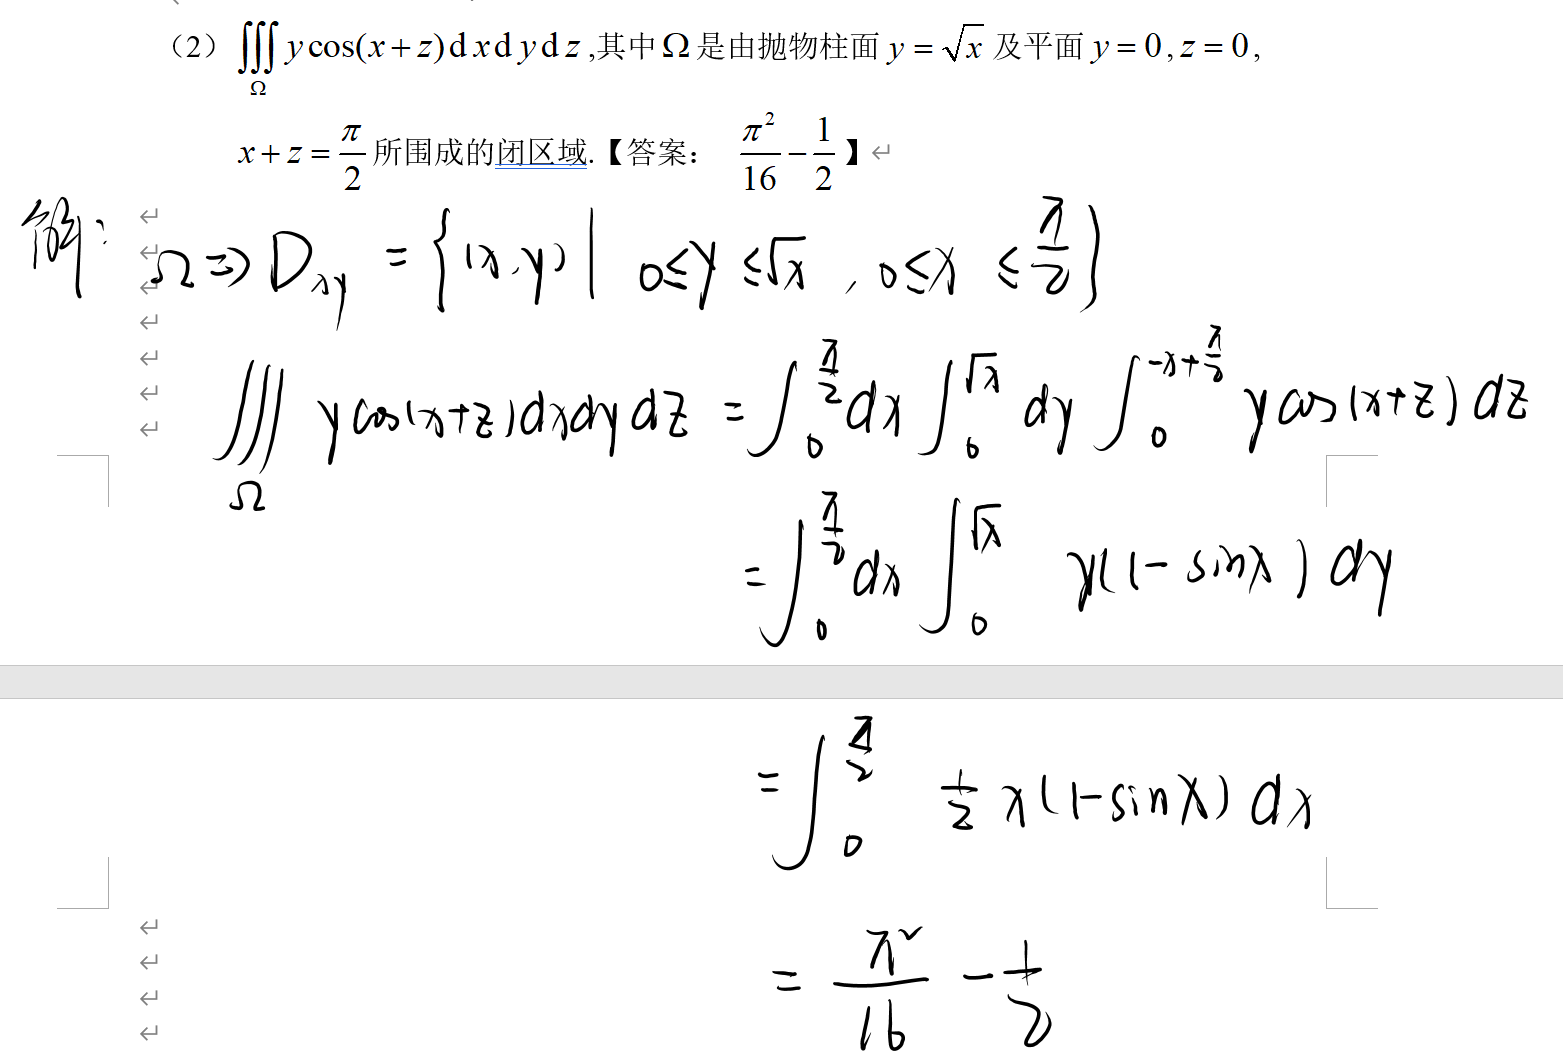 （2）∭_Ω y cos(x+z)dxdydz,其中Ω是由抛物柱面 y=√x 及平面 y=0,z=0,
x+z=π/2 所围成的闭区域.【答案： π²/16−1/2】
解： Ω⇒D_xy={(x,y)| 0≤y≤√x , 0≤x≤π/2}
∭_Ω ycos(x+z)dxdydz = ∫_0^{π/2} dx ∫_0^{√x} dy ∫_0^{-x+π/2} ycos(x+z)dz
= ∫_0^{π/2} dx ∫_0^{√x} y(1-sinx)dy
= ∫_0^{π/2} 1/2 x(1-sinx)dx
= π²/16 − 1/2